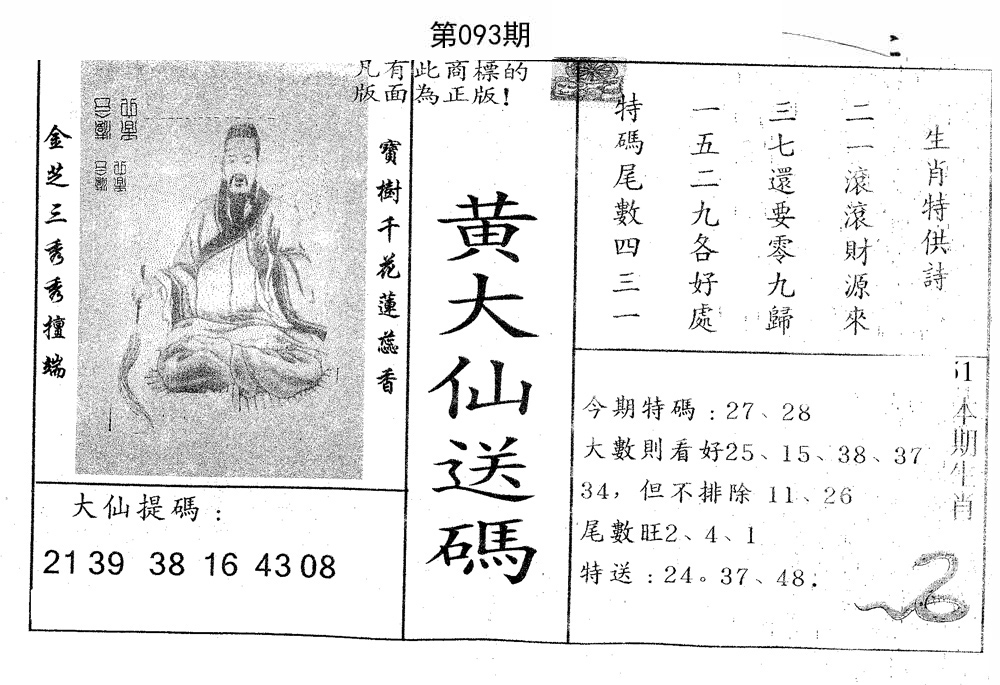 第093期
凡有此商標的
版面為正版!
金芝三秀秀擅端
寶樹千花蓮蕊香
大仙提碼：
21 39 38 16 43 08
黄大仙送碼
生肖特供詩
二一滾滾財源來
三七還要零九歸
一五二九各好處
特碼尾數四三一
今期特碼：27、28
大數則看好25、15、38、37
34，但不排除 11、26
尾數旺2、4、1
特送：24。37、48.
本期生肖